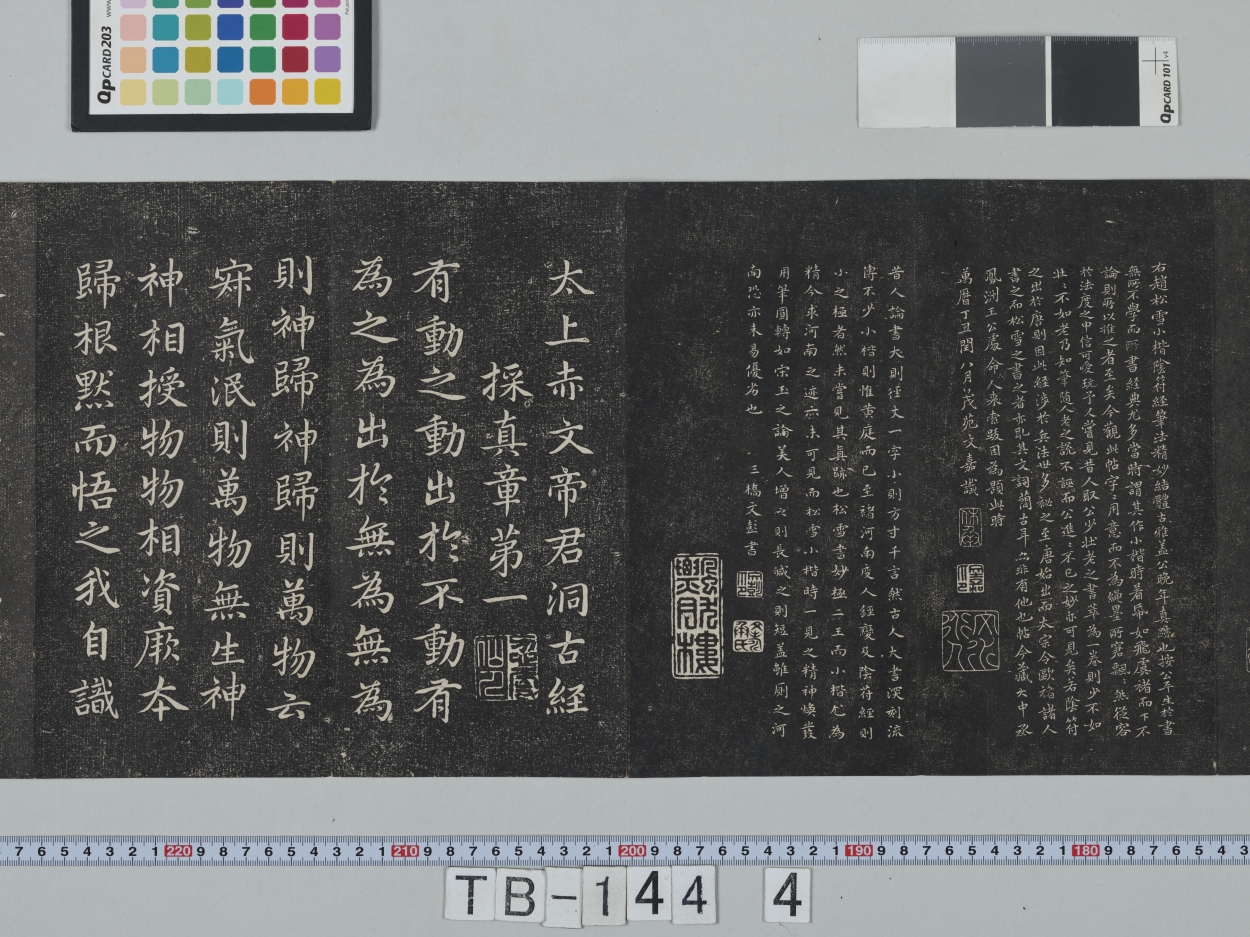 右趙松雪小楷陰符經筆法精妙結體古雅蓋公晚年真蹟也按公平生於書
無所不學而所書經典尤多當時謂其作小楷時著紙如飛虞褚而下不
論則所以推之者至矣今觀此帖字字用意而不為繩墨所窘飄飄然從容
於法度之中信可愛玩予又嘗見昔人取公少壯老之書萃為一卷則少不如
壯壯不如老乃知筆隨人老之說不誣而公進進不已之妙亦可見矣若陰符
之出於唐則因此經涉於兵法世多祕之至唐始出而太宗令歐褚諸人
書之而松雪之書之者亦取其文詞簡古耳亦非有他也帖今藏大中丞
鳳洲王公處命人來索跋因為題此時
萬曆丁丑閏八月茂苑文嘉識
昔人論書大則徑丈一字小則方寸千言然古人大書深刻流
傳不少小楷則惟黃庭而已至褚河南度人經變及陰符經則
小之極者然未嘗見其真跡也松雪書妙極二王而小楷尤為
精今求河南之迹亦未可見而松雪小楷時一見之精神煥發
用筆圓轉如宋玉之論美人增之則長減之則短蓋雖廁之河
南恐亦未易優劣也 三橋文彭書
太上赤文帝君洞古經
採真章第一
有動之動出於不動有
為之為出於無為無為
則神歸神歸則萬物云
寂氣泯則萬物無生神
神相授物物相資厥本
歸根默而悟之我自識
QpCARD 203
QpCARD 101 v4
7 6 5 4 3 2 1 220 9 8 7 6 5 4 3 2 1 210 9 8 7 6 5 4 3 2 1 200 9 8 7 6 5 4 3 2 1 190 9 8 7 6 5 4 3 2 1 180 9 8 7 6 5 4 3
TB-144 4